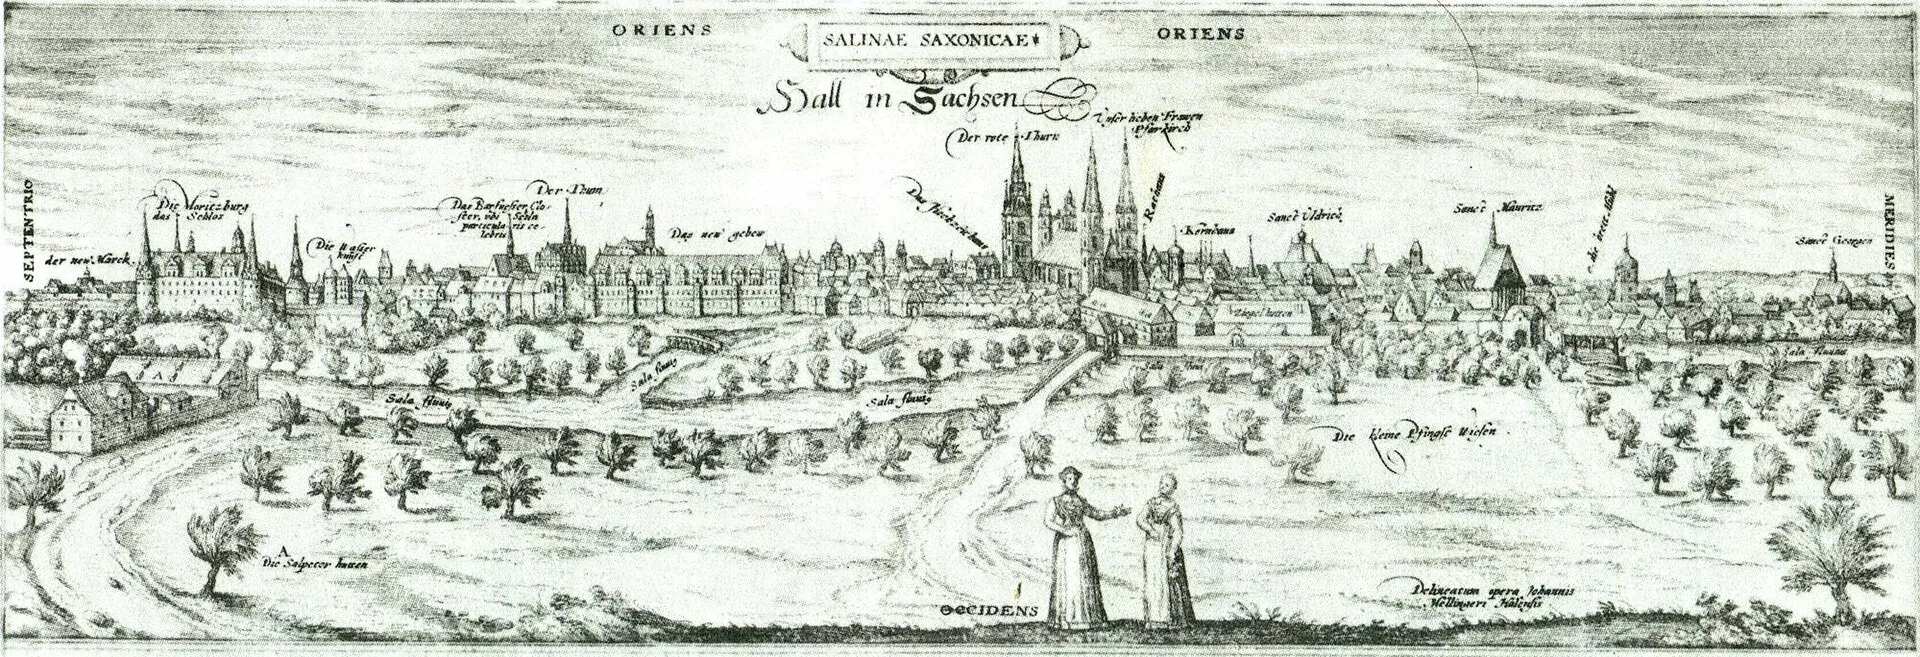 ORIENS
SALINAE SAXONICAE
ORIENS
Hall in Sachsen
Der rote Thurn
Unser lieben Frawen
Pfarkirch
SEPTENTRIO
MERIDIES
Die Moritzburg
das Schlos
der new Marck
Die Wasser
kunst
Das Barfuesser Clo-
ster, vbi Schla
particularis ce-
lebris
Der Thum
Das new gebew
Das Hochzeithaus
Rathaus
Kornhaus
Sanct Uldrico
Sanct Mauritz
Sanct Georgen
Ziegel hutten
Sala fluuius
Sala fluuius
Sala fluuius
Sala fluuius
Sala fluuius
Die kleine Pfingst Wiesen
A
A
Die Salpeter hutten
OCCIDENS
Delineatum opera Johannis
Mellingeri Halensis